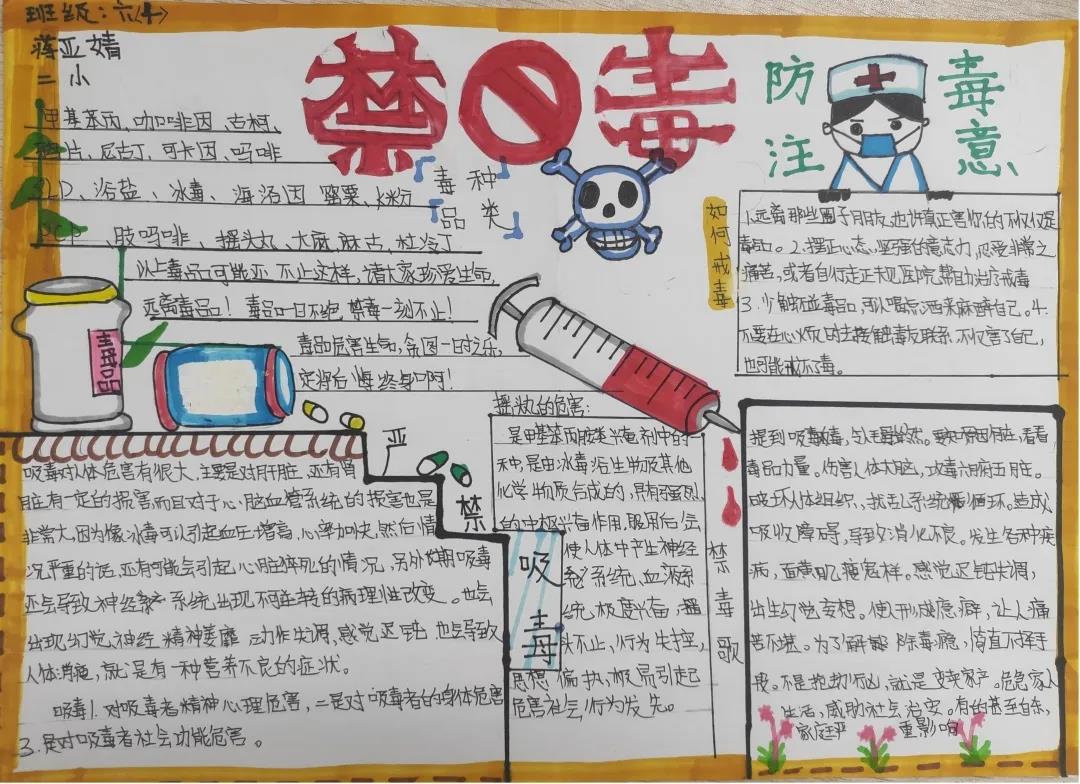 班级:六(4)
蒋亚婧
二小
禁毒
防毒
注意
甲基苯丙、咖啡因、古柯、
片、尼古丁、可卡因、吗啡
LD、浴盐、冰毒、海洛因 罂粟、火粉
PCP、胺吗啡、摇头丸、大麻、麻古、杜冷丁
毒品种类
以上毒品可能还不止这样,请大家珍爱生命,
远离毒品!毒品一日不绝,禁毒一刻不止!
毒品危害生命,贪图一时之乐,
定将后悔终身啊!
毒品
如何戒毒
1.远离那些圈子朋友,也许真正害你的不仅仅是
毒品。2.摆正心态,坚强的意志力,忍受非常之
痛苦,或者自行走正规医院帮助治疗戒毒
3.少触碰毒品,可以喝点酒来麻醉自己。4.
不要在心烦时去接触毒友联系,不仅害了自己,
也可能戒不了毒。
吸毒对人体危害有很大,主要是对肝脏,还有肾
脏有一定的损害而且对于心脑血管系统的损害也是
非常大,因为像冰毒可以引起血压增高,心率加快,然后情
况严重的话,还有可能会引起心脏猝死的情况,另外长期吸毒
还会导致神经系统出现不可逆转的病理性改变。也会
出现幻觉,神经精神萎靡,动作失调,感觉迟钝也会导致
人体消瘦,就是有一种营养不良的症状。
吸毒1.对吸毒者精神心理危害,二是对吸毒者的身体危害
3.是对吸毒者社会功能危害。
严禁吸毒
摇丸的危害:
是甲基苯丙胺类兴奋剂中的一
种,是由冰毒浴生物及其他
化学物质合成的,具有强烈
的中枢兴奋作用,服用后会
使人体中产生神经
系统,血液系
统,极度兴奋,摇
头不止,行为失控,
思想偏执,极易引起
危害社会行为发先。
禁毒歌
提到吸毒,令人毛骨悚然。看看
毒品力量。伤害人体大脑,攻毒六腑五脏。
破坏人体组织、扰乱系统循环,造成
吸收障碍,导致消化不良。发生各种疾
病,面黄肌瘦怎样。感觉迟钝失调,
出生幻觉妄想。使人形成瘾癖,让人痛
苦不堪。为了解除毒瘾,简直不择手
段。不是抢劫行凶,就是变卖家产。危急家人
生活,威胁社会治安。有的甚至自杀,
家庭严重影响